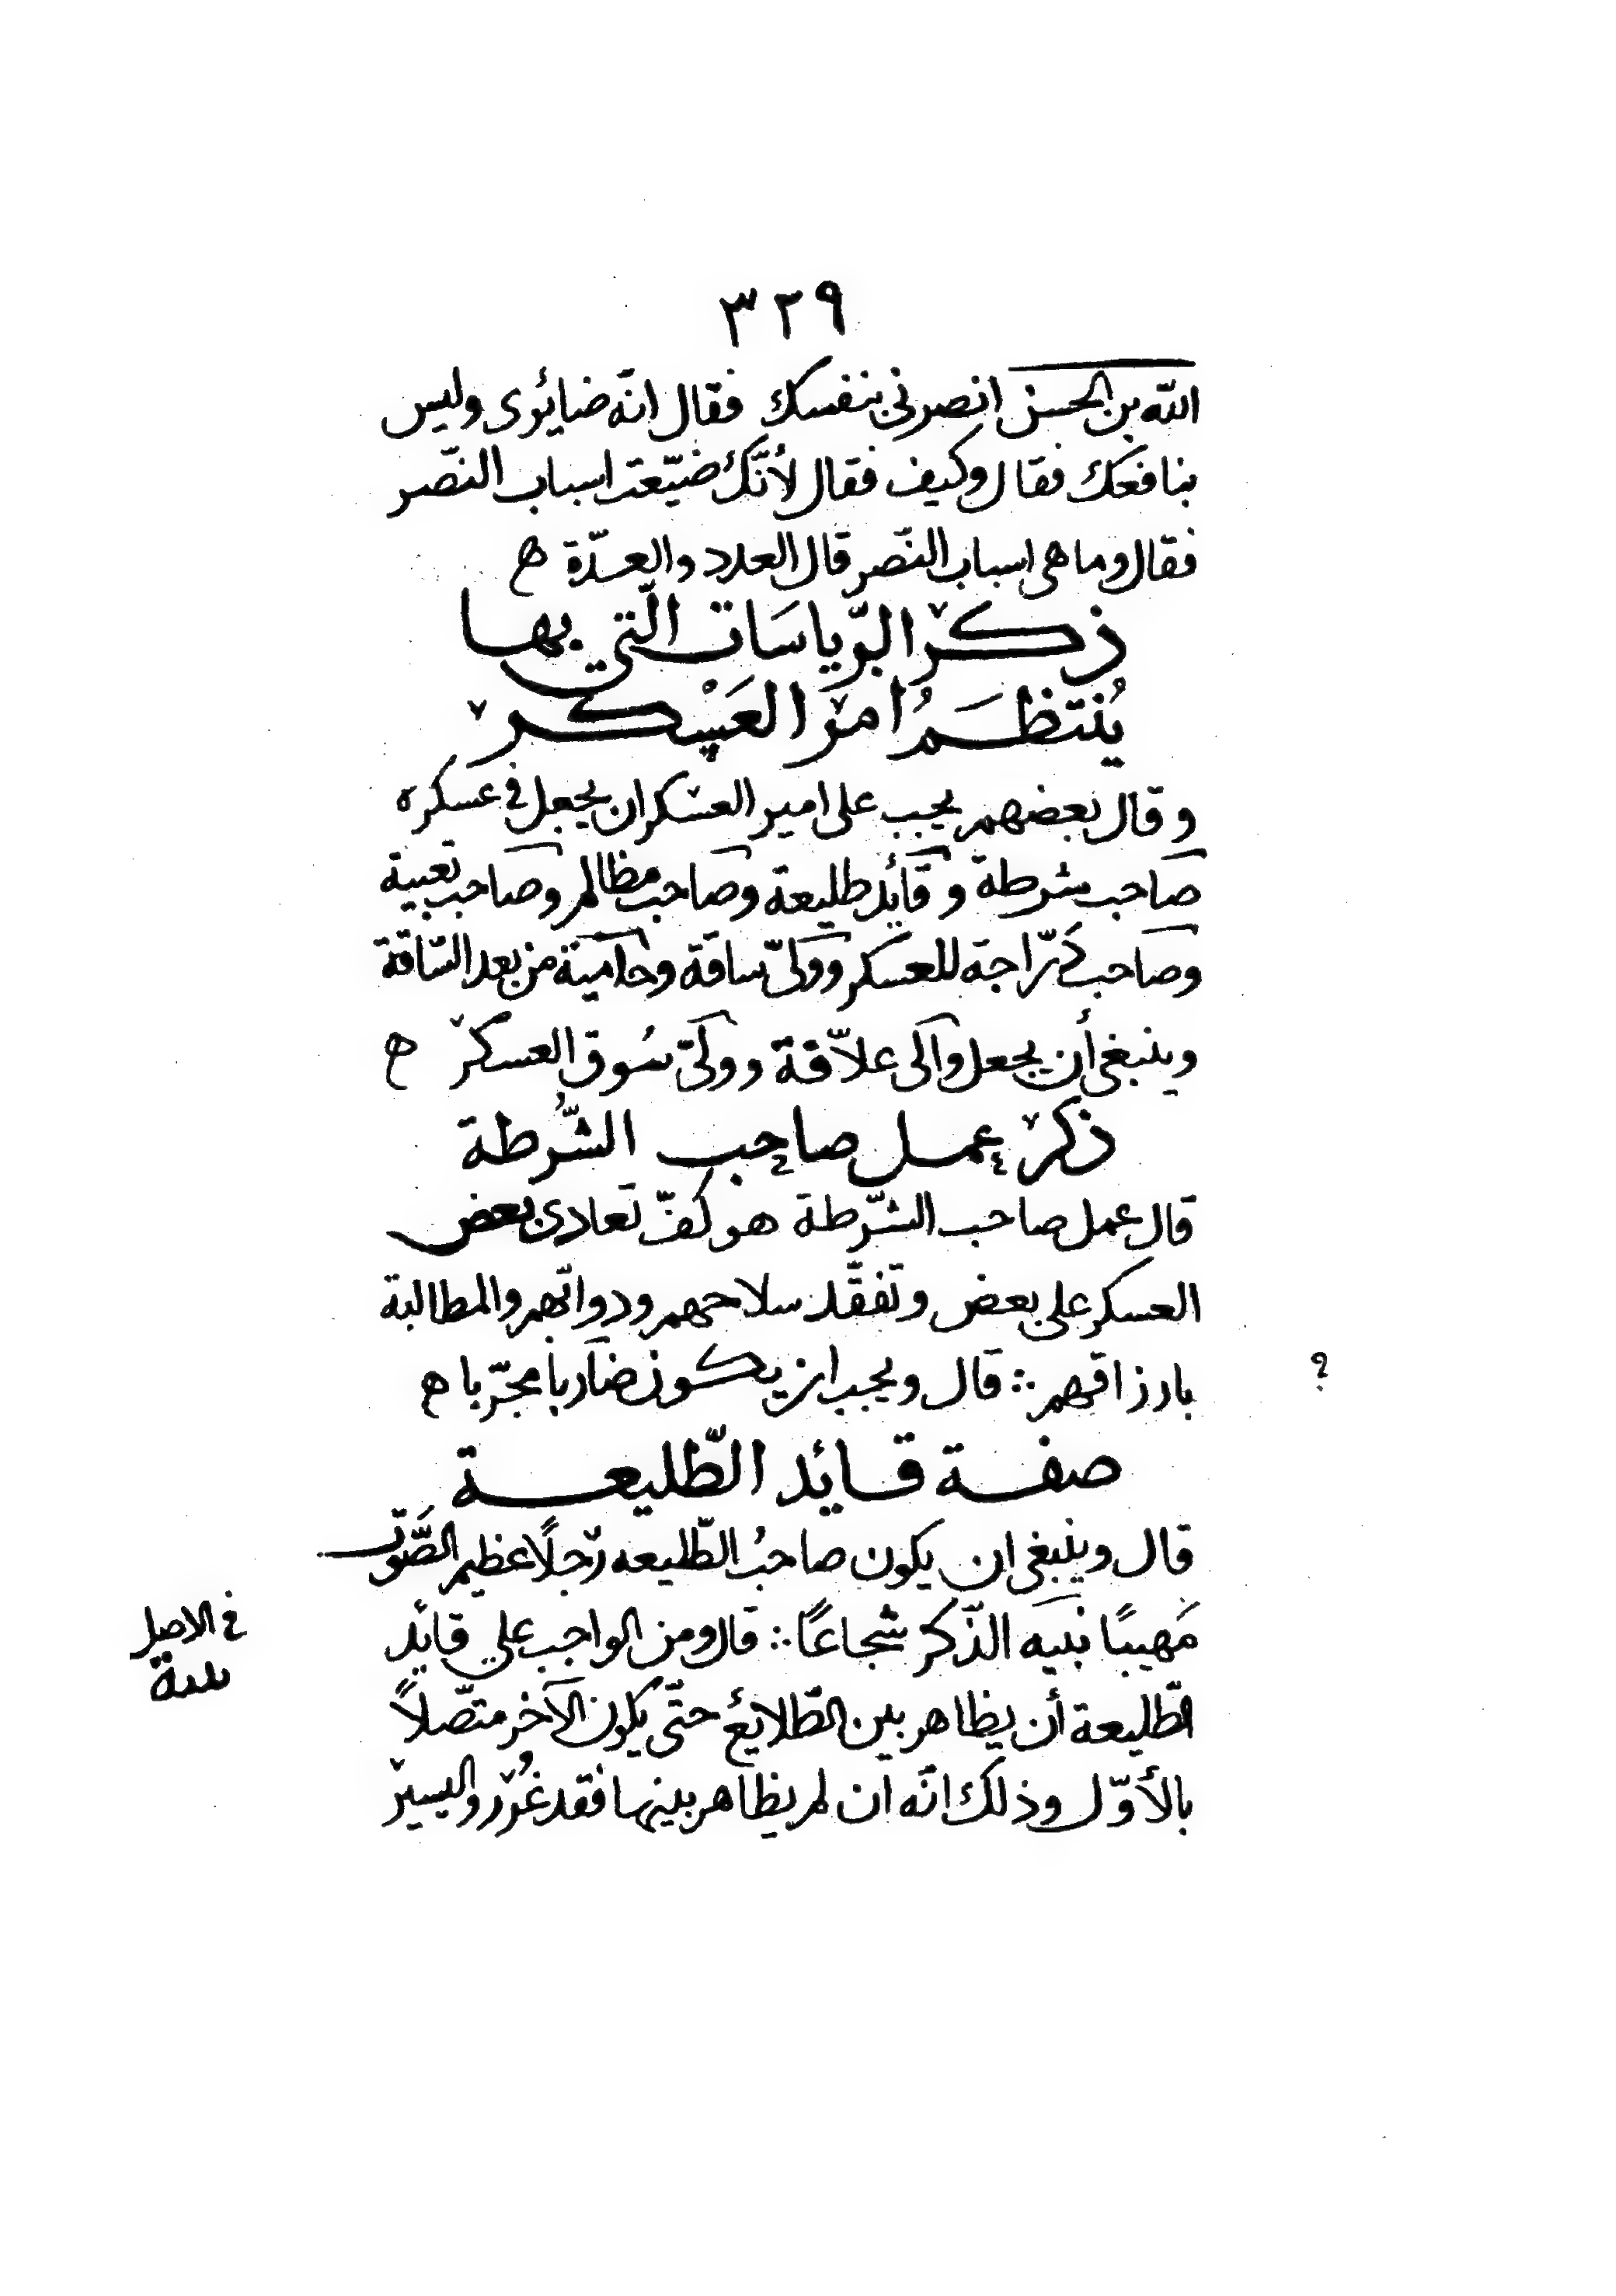 ٣٢٩
الله بن الحسن انصرني بنفسك فقال انّه ضائري وليس
بنافعك فقال وكيف فقال لأنّك ضيّعت اسباب النّصر
فقال وما هي اسباب النّصر قال العدد والعدّة ه
ذكر الرّياسَات الّتي بها
يُنتظَمُ امر العَسْكر
وقال بعضهم يجب على امير العسكر ان يجعل في عسكره
صاحب شرطة وقائد طليعة وصاحب مظالم وصاحب تعبية
وصاحب دَرّاجة للعسكر وولىّ ساقة وحامية من بعد السّاقة
وينبغي أن يجعل والى علاّفة وولىّ سُوق العسكر ه
ذكر عمل صاحب الشُّرطة
قال عمل صاحب الشّرطة هو كفّ تعادى بعض
العسكر على بعض وتفقّد سلاحهم ودوابّهم والمطالبة
بارزاقهم ∴ قال ويجب ان يكون ضاربا مجرّبا ه
؟
صفة قائد الطّليعة
قال وينبغي ان يكون صاحبُ الطّليعه رّجلًا عظيم الصَّوت
مَهيبًا نبيَه الذّكر شجاعًا ∴ قال ومن الواجب علي قائد
في الاصل
الطّليعة أن يظاهر بين الطّلائع حتّى يكون الآخر متّصلاً
بالأوّل وذلك انّه ان لم يظاهر بينها فقد غُرّر واليسير